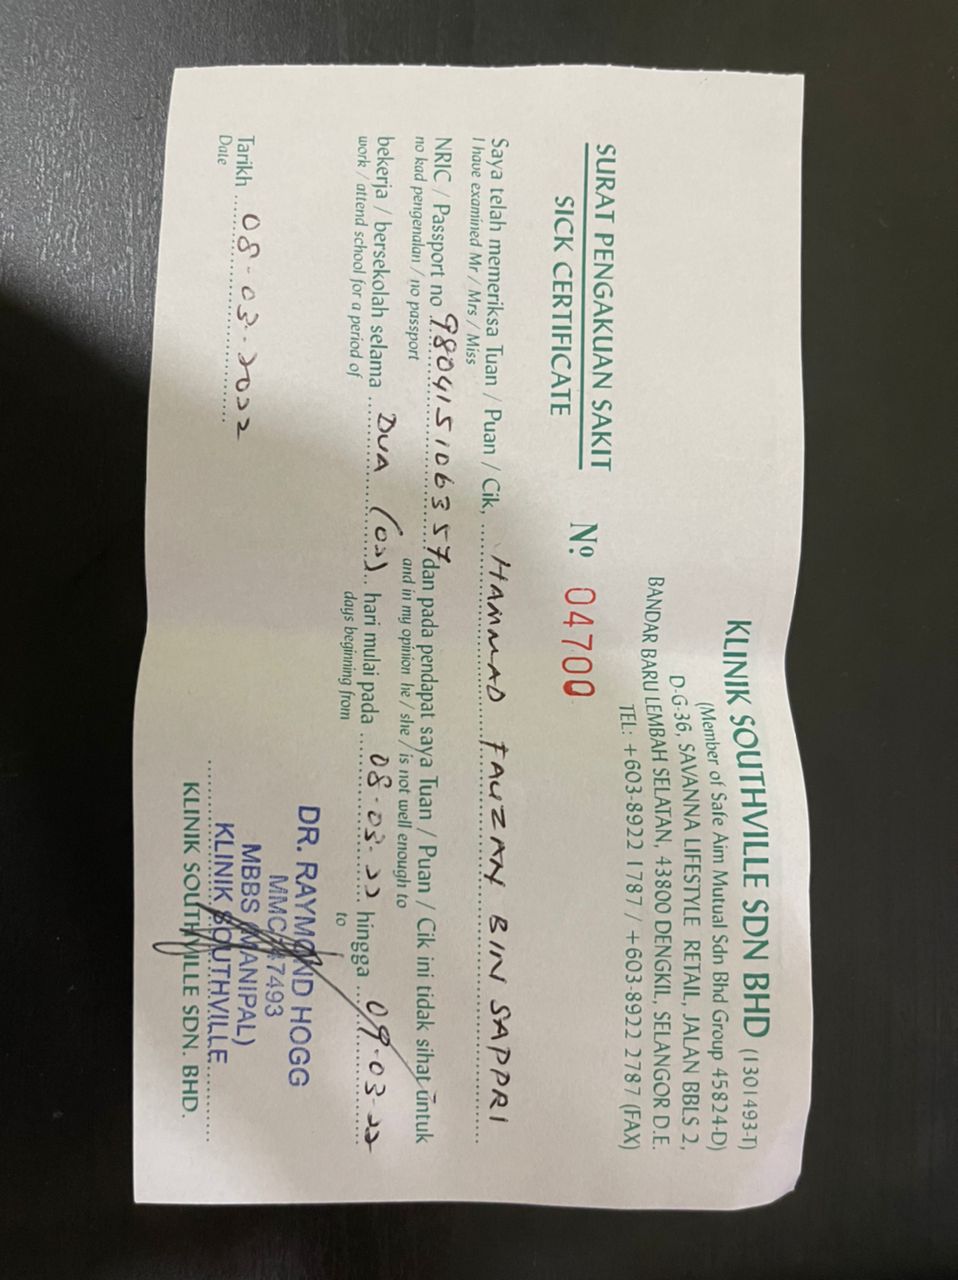 KLINIK SOUTHVILLE SDN BHD (1301493-T)
(Member of Safe Aim Mutual Sdn Bhd Group 45824-D)
D-G-36, SAVANNA LIFESTYLE RETAIL, JALAN BBLS 2,
BANDAR BARU LEMBAH SELATAN, 43800 DENGKIL, SELANGOR D.E.
TEL: +603-8922 1787 / +603-8922 2787 (FAX)
SURAT PENGAKUAN SAKIT
SICK CERTIFICATE
Nº 04700
Saya telah memeriksa Tuan / Puan / Cik, HAMMAD FAUZAN BIN SAPPRI
I have examined Mr / Mrs / Miss
NRIC / Passport no 980415106357 dan pada pendapat saya Tuan / Puan / Cik ini tidak sihat untuk
no kad pengenalan / no passport and in my opinion he / she / is not well enough to
bekerja / bersekolah selama DUA (02) hari mulai pada 08-03-22 hingga 09-03-22
work / attend school for a period of days beginning from to
DR. RAYMOND HOGG
MMC 47493
MBBS (MANIPAL)
KLINIK SOUTHVILLE
Tarikh 08-03-2022
Date
KLINIK SOUTHVILLE SDN. BHD.